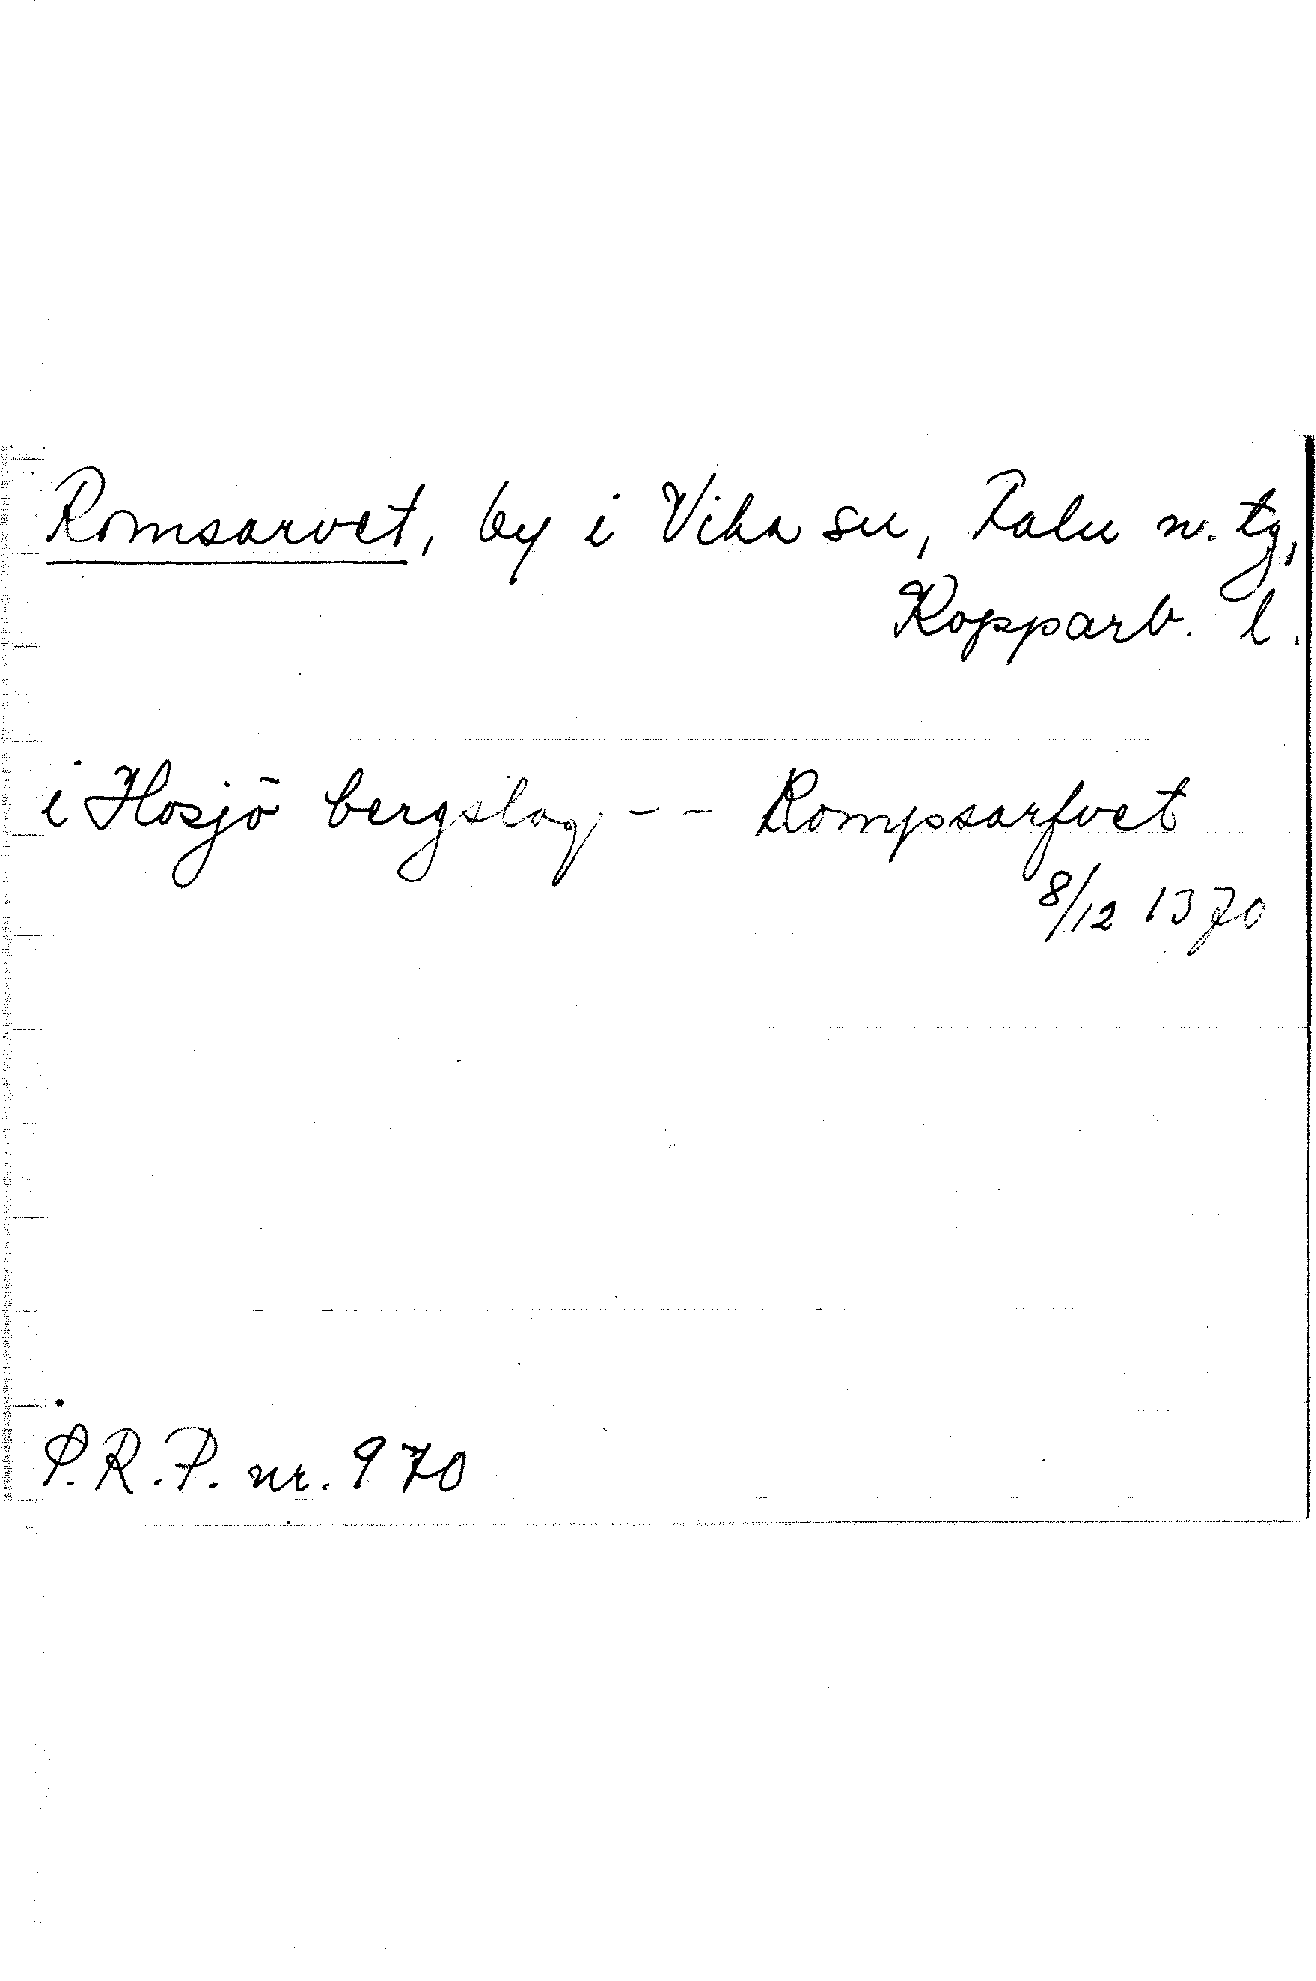 Romsarvet, by i Vika sn, Falu n. tg,
Kopparb. l.
i Hosjö bergslag -- Rompsarfvet
8/12 1370
P.R.P. nr. 970